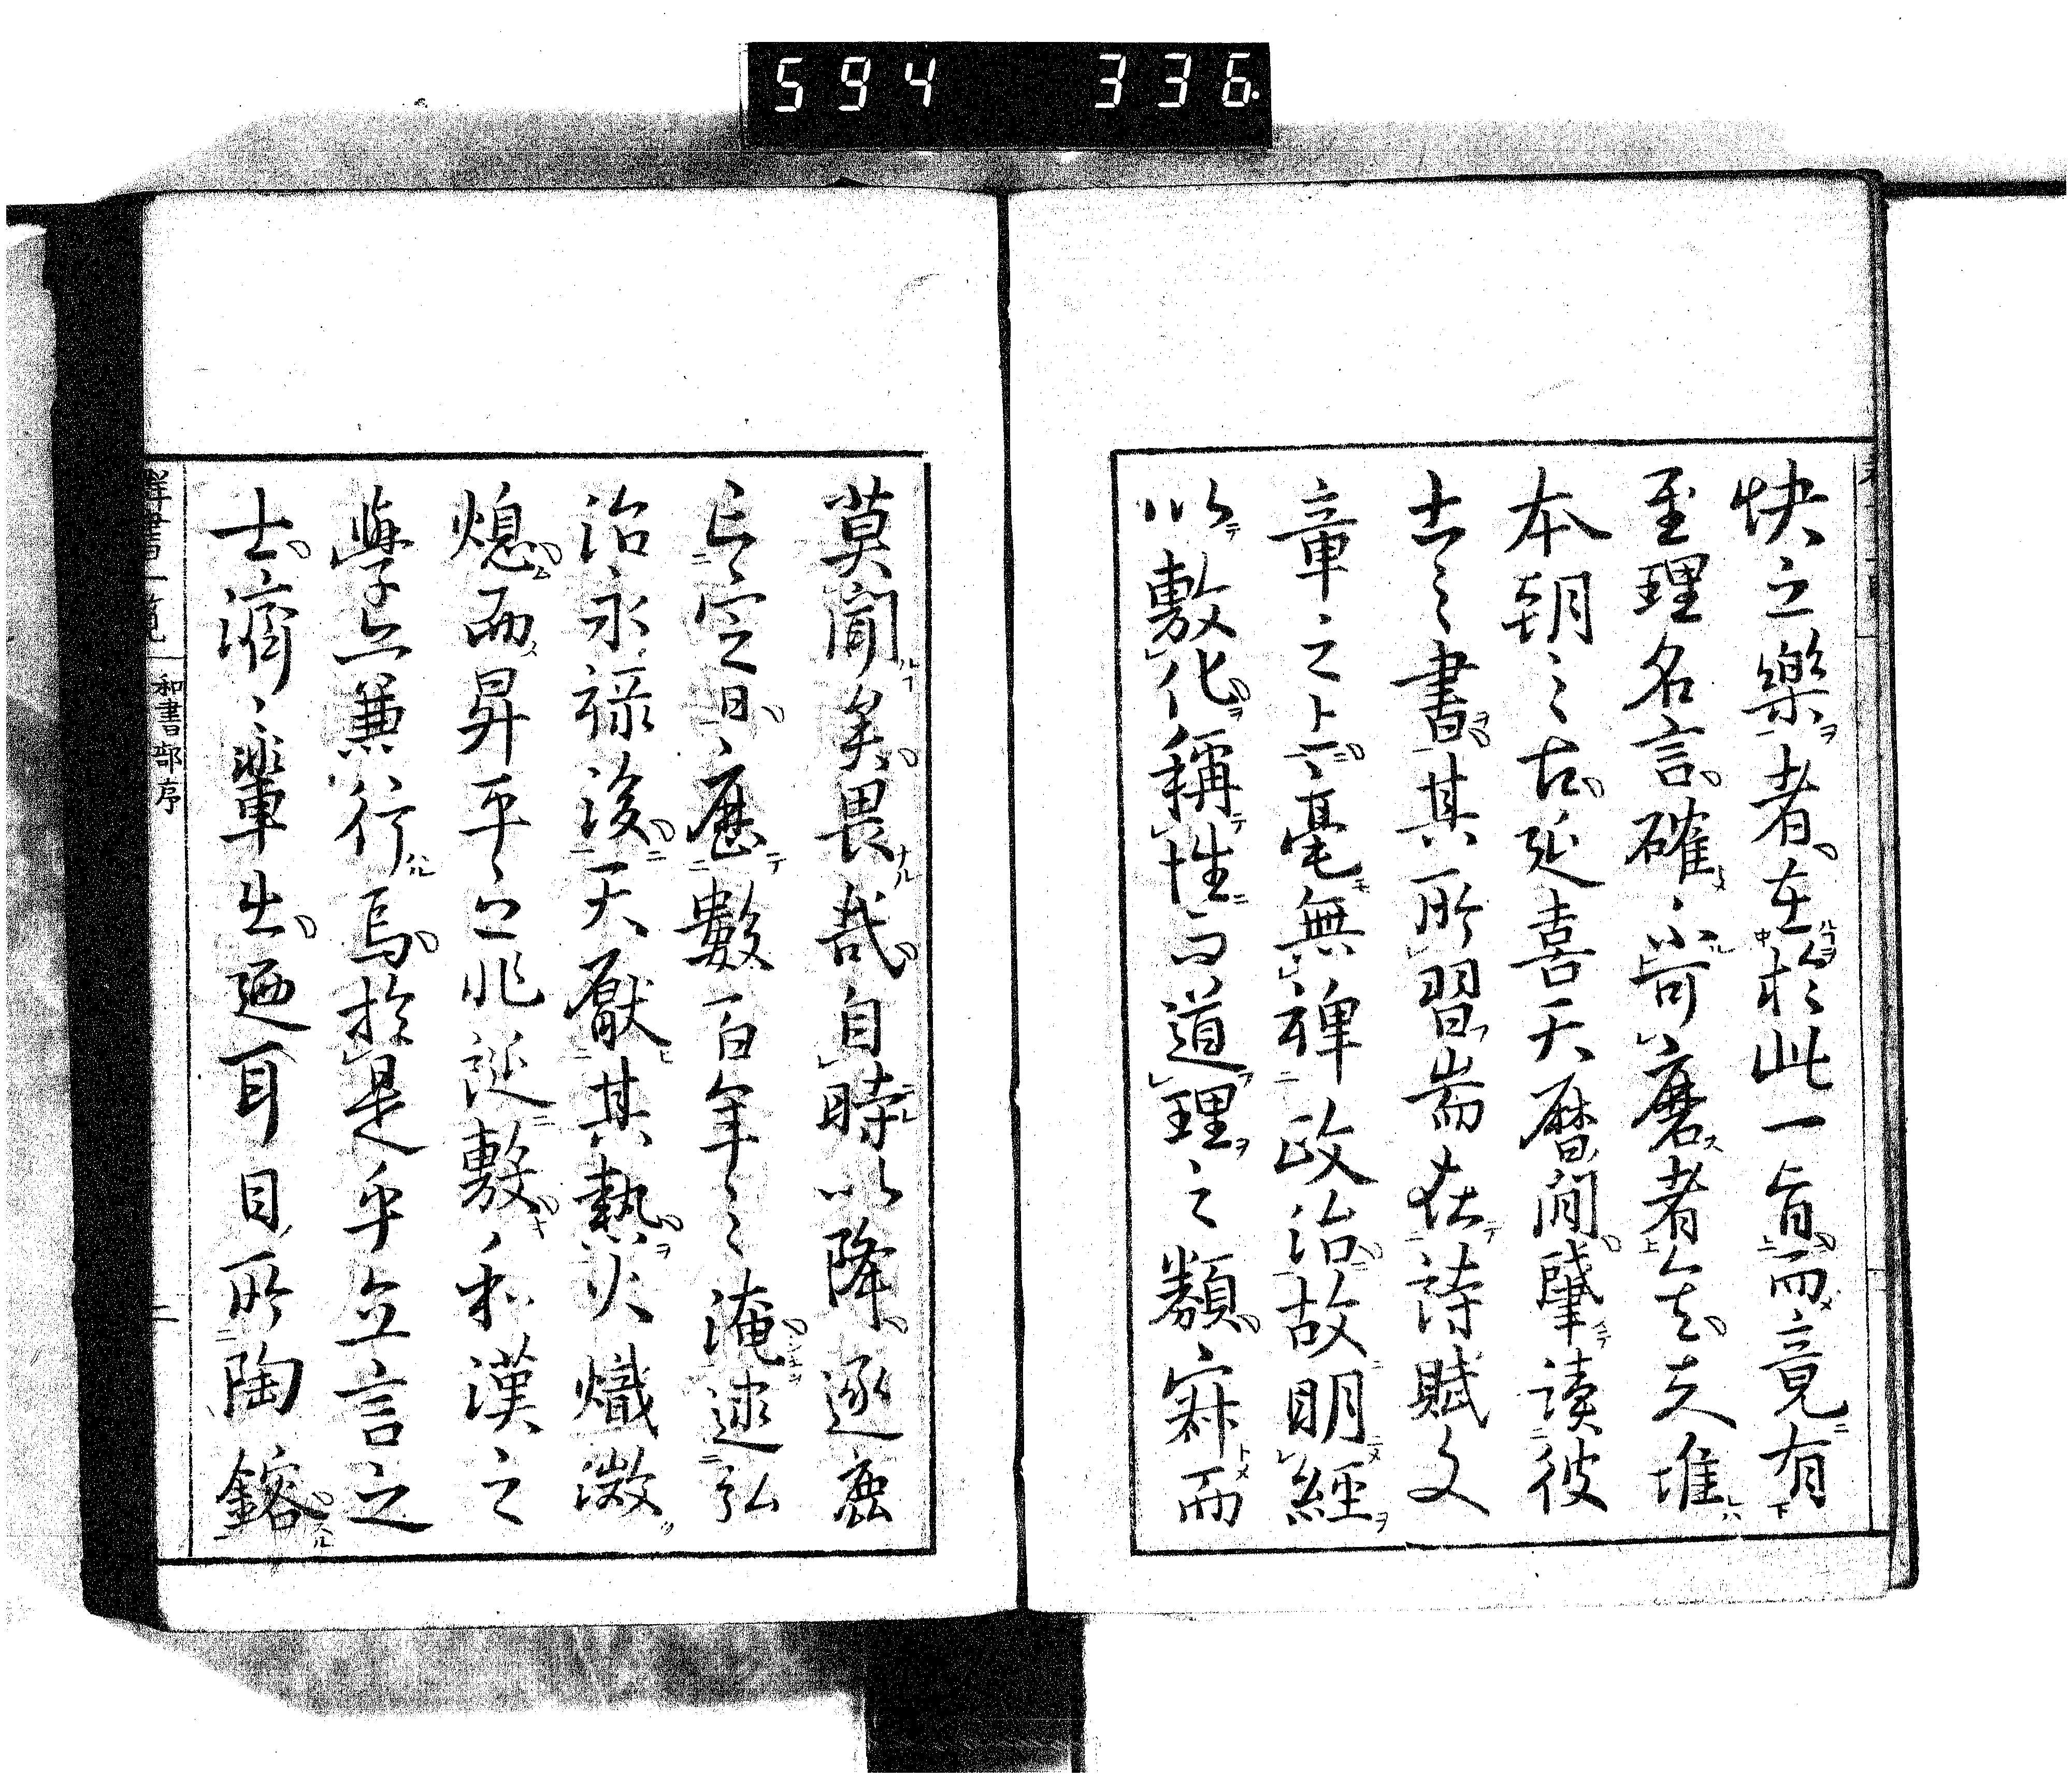 594 336.
快之樂者在於此一旨而竟有
至理名言確乎不可磨者矣夫堆
本朝之古延喜天曆間肇讀彼
土之書其所習耑在詩賦文
章之上毫無裨政治故明經
以敷化稱性而道理之類寂而
莫聞矣畏哉自時以降逐鹿
之空日歷數百年之淹逮弘
治永祿後天厭其熱火熾
熄而昇平之兆誕敷和漢之
學亦兼行焉於是乎立言之
士濟々輩出廼耳目所陶鎔
群書一覧
和書部序
二